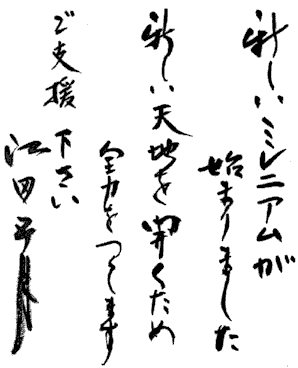 新しいミレニアムが
始まりました
新しい天地を開くため
全力をつくします
ご支援下さい
江田五月